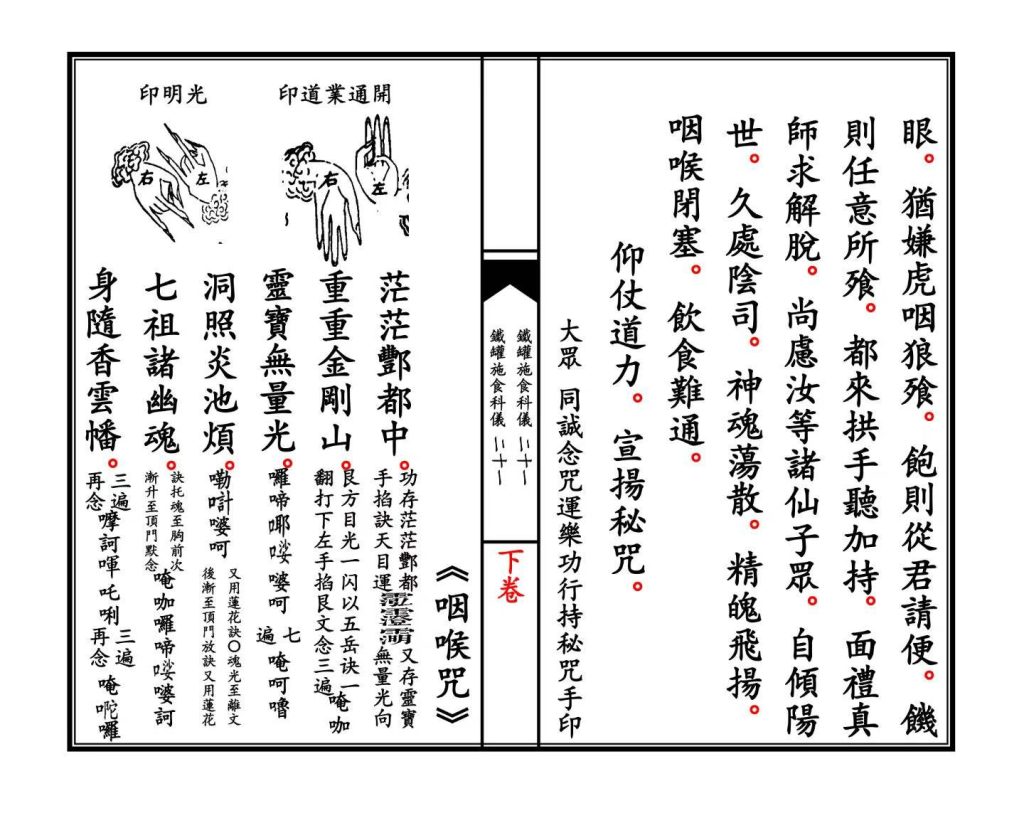 眼。猶嫌虎咽狼飱。飽則從君請便。饑
則任意所飱。都來拱手聽加持。面禮真
師求解脫。尚慮汝等諸仙子眾。自傾陽
世。久處陰司。神魂蕩散。精魄飛揚。
咽喉閉塞。飲食難通。
仰仗道力。宣揚秘咒。
大眾 同誠念咒運樂功行持秘咒手印
鐵罐施食科儀 二十一
鐵罐施食科儀 二十一
下卷
《咽喉咒》
開通業道印
右
左
光明印
右
左
茫茫酆都中。
功存茫茫酆都又存靈寶
手掐訣天目運無量光向
重重金剛山。
艮方目光一闪以五岳诀一
翻打下左手掐艮文念三遍
唵咖
靈寶無量光。
囉啼㖿娑婆呵 七遍 唵呵嚕
洞照炎池煩。
嘞㖑婆呵
又用蓮花訣〇魂光至離文
後漸至頂門放訣又用蓮花
七祖諸幽魂。
訣托魂至胸前次
漸升至頂門默念
唵咖囉啼娑婆訶
身隨香雲幡。
三遍
再念
嚤訶㖶吒唎
三遍
再念
唵㖡囉